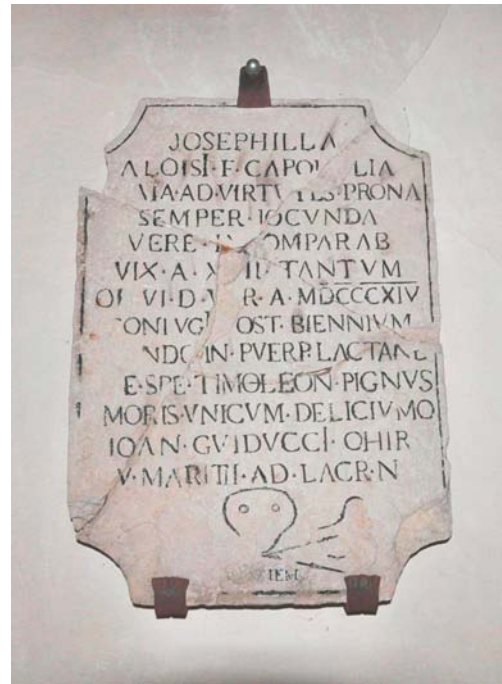 JOSEPHILLA
ALOISI·F·CAPO LIA
VIA·AD·VIRTVTES·PRONA
SEMPER·IOCVNDA
VERE· OMPARAB
VIX·A· II·TANTVM
VI·D· R·A·MDCCCXIV
CONIVGI OST·BIENNIVM
NDO·IN·PVERP·LACTANE
E·SPE·TIMOLEON·PIGNVS
MORIS·VNICVM·DELICIVMO
IOAN·GVIDVCCI·OHIR
V·MARITII·AD·LACR·N
IEM